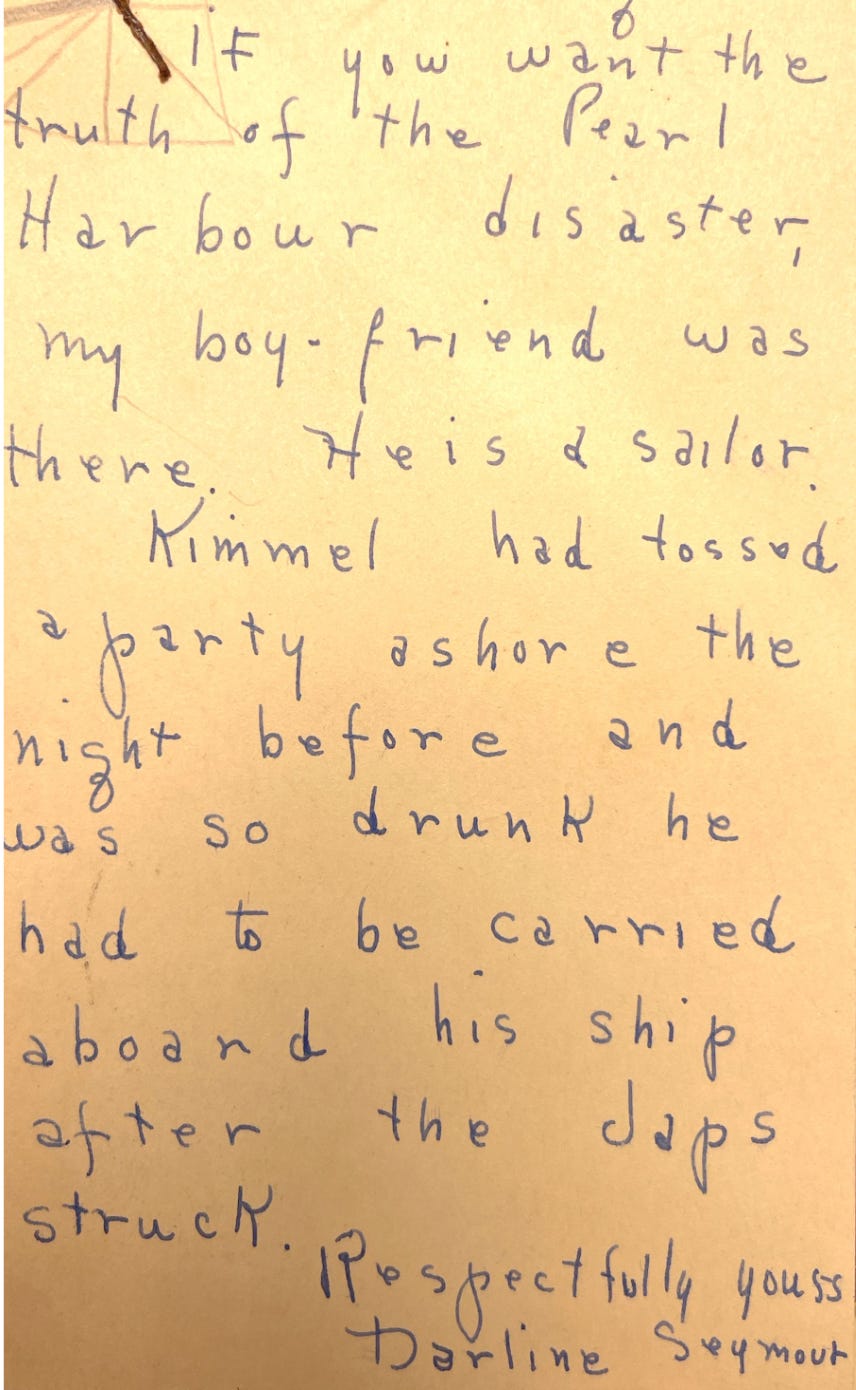 If you want the
truth of the Pearl
Harbour disaster,
my boy-friend was
there. He is a sailor.
Kimmel had tossed
a party ashore the
night before and
was so drunk he
had to be carried
aboard his ship
after the Japs
struck.
Respectfully youss
Darline Seymour